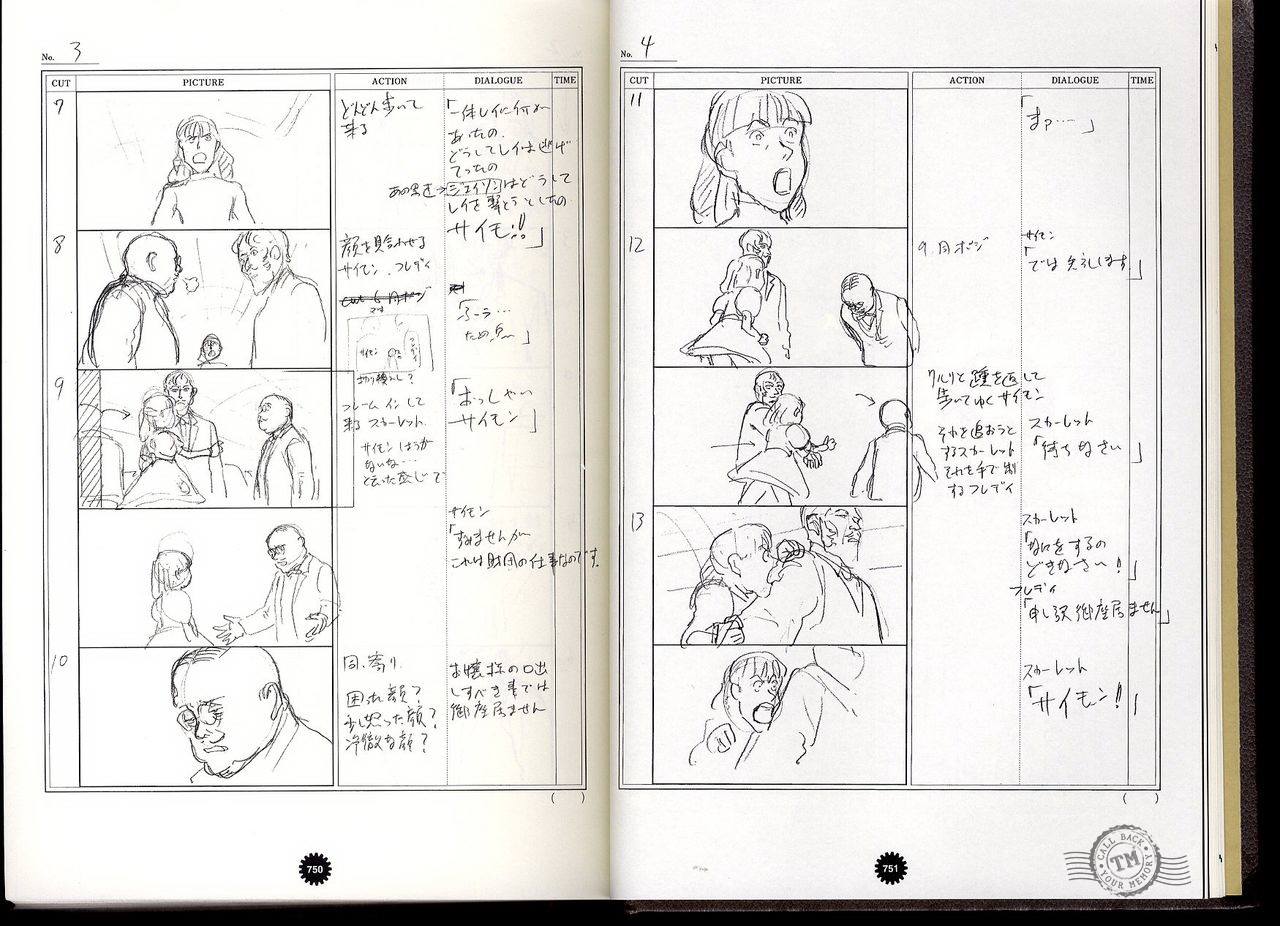 No. 3
CUT PICTURE ACTION DIALOGUE TIME
7
どんどん歩いて
来る
「一体レイに何が
あったの
どうしてレイは逃げ
てったの
ジェイソンはどうして
レイを撃とうとしたの
サイモン!!」
8
顔を見合わせる
サイモン、フレディ
cut 6 同ポジ
です
サイモン
フレディ
「ふーう…
9
フレームインして
来るスカーレット
サイモンは
ないな…
と云った感じで
「おっしゃい
サイモン」
サイモン
「すみませんが
これは財団の仕事なのです。
10
同、寄り、
困った顔?
少し怒った顔?
冷徹な顔?
お嬢様の口出
しすべき事では
御座居ません
( )
750
No. 4
CUT PICTURE ACTION DIALOGUE TIME
11
「まァ…」
12
9.同ポジ
サイモン
「では失礼します」
クルリと踵を返して
歩いてゆくサイモン
それを追おうと
するスカーレット
それを手で制
するフレディ
スカーレット
「待ちなさい」
13
スカーレット
「なにをするの
どきなさい!」
フレディ
「申し訳御座居ません」
スカーレット
「サイモン!」
( )
751
CALL BACK
TM
YOUR MEMORY